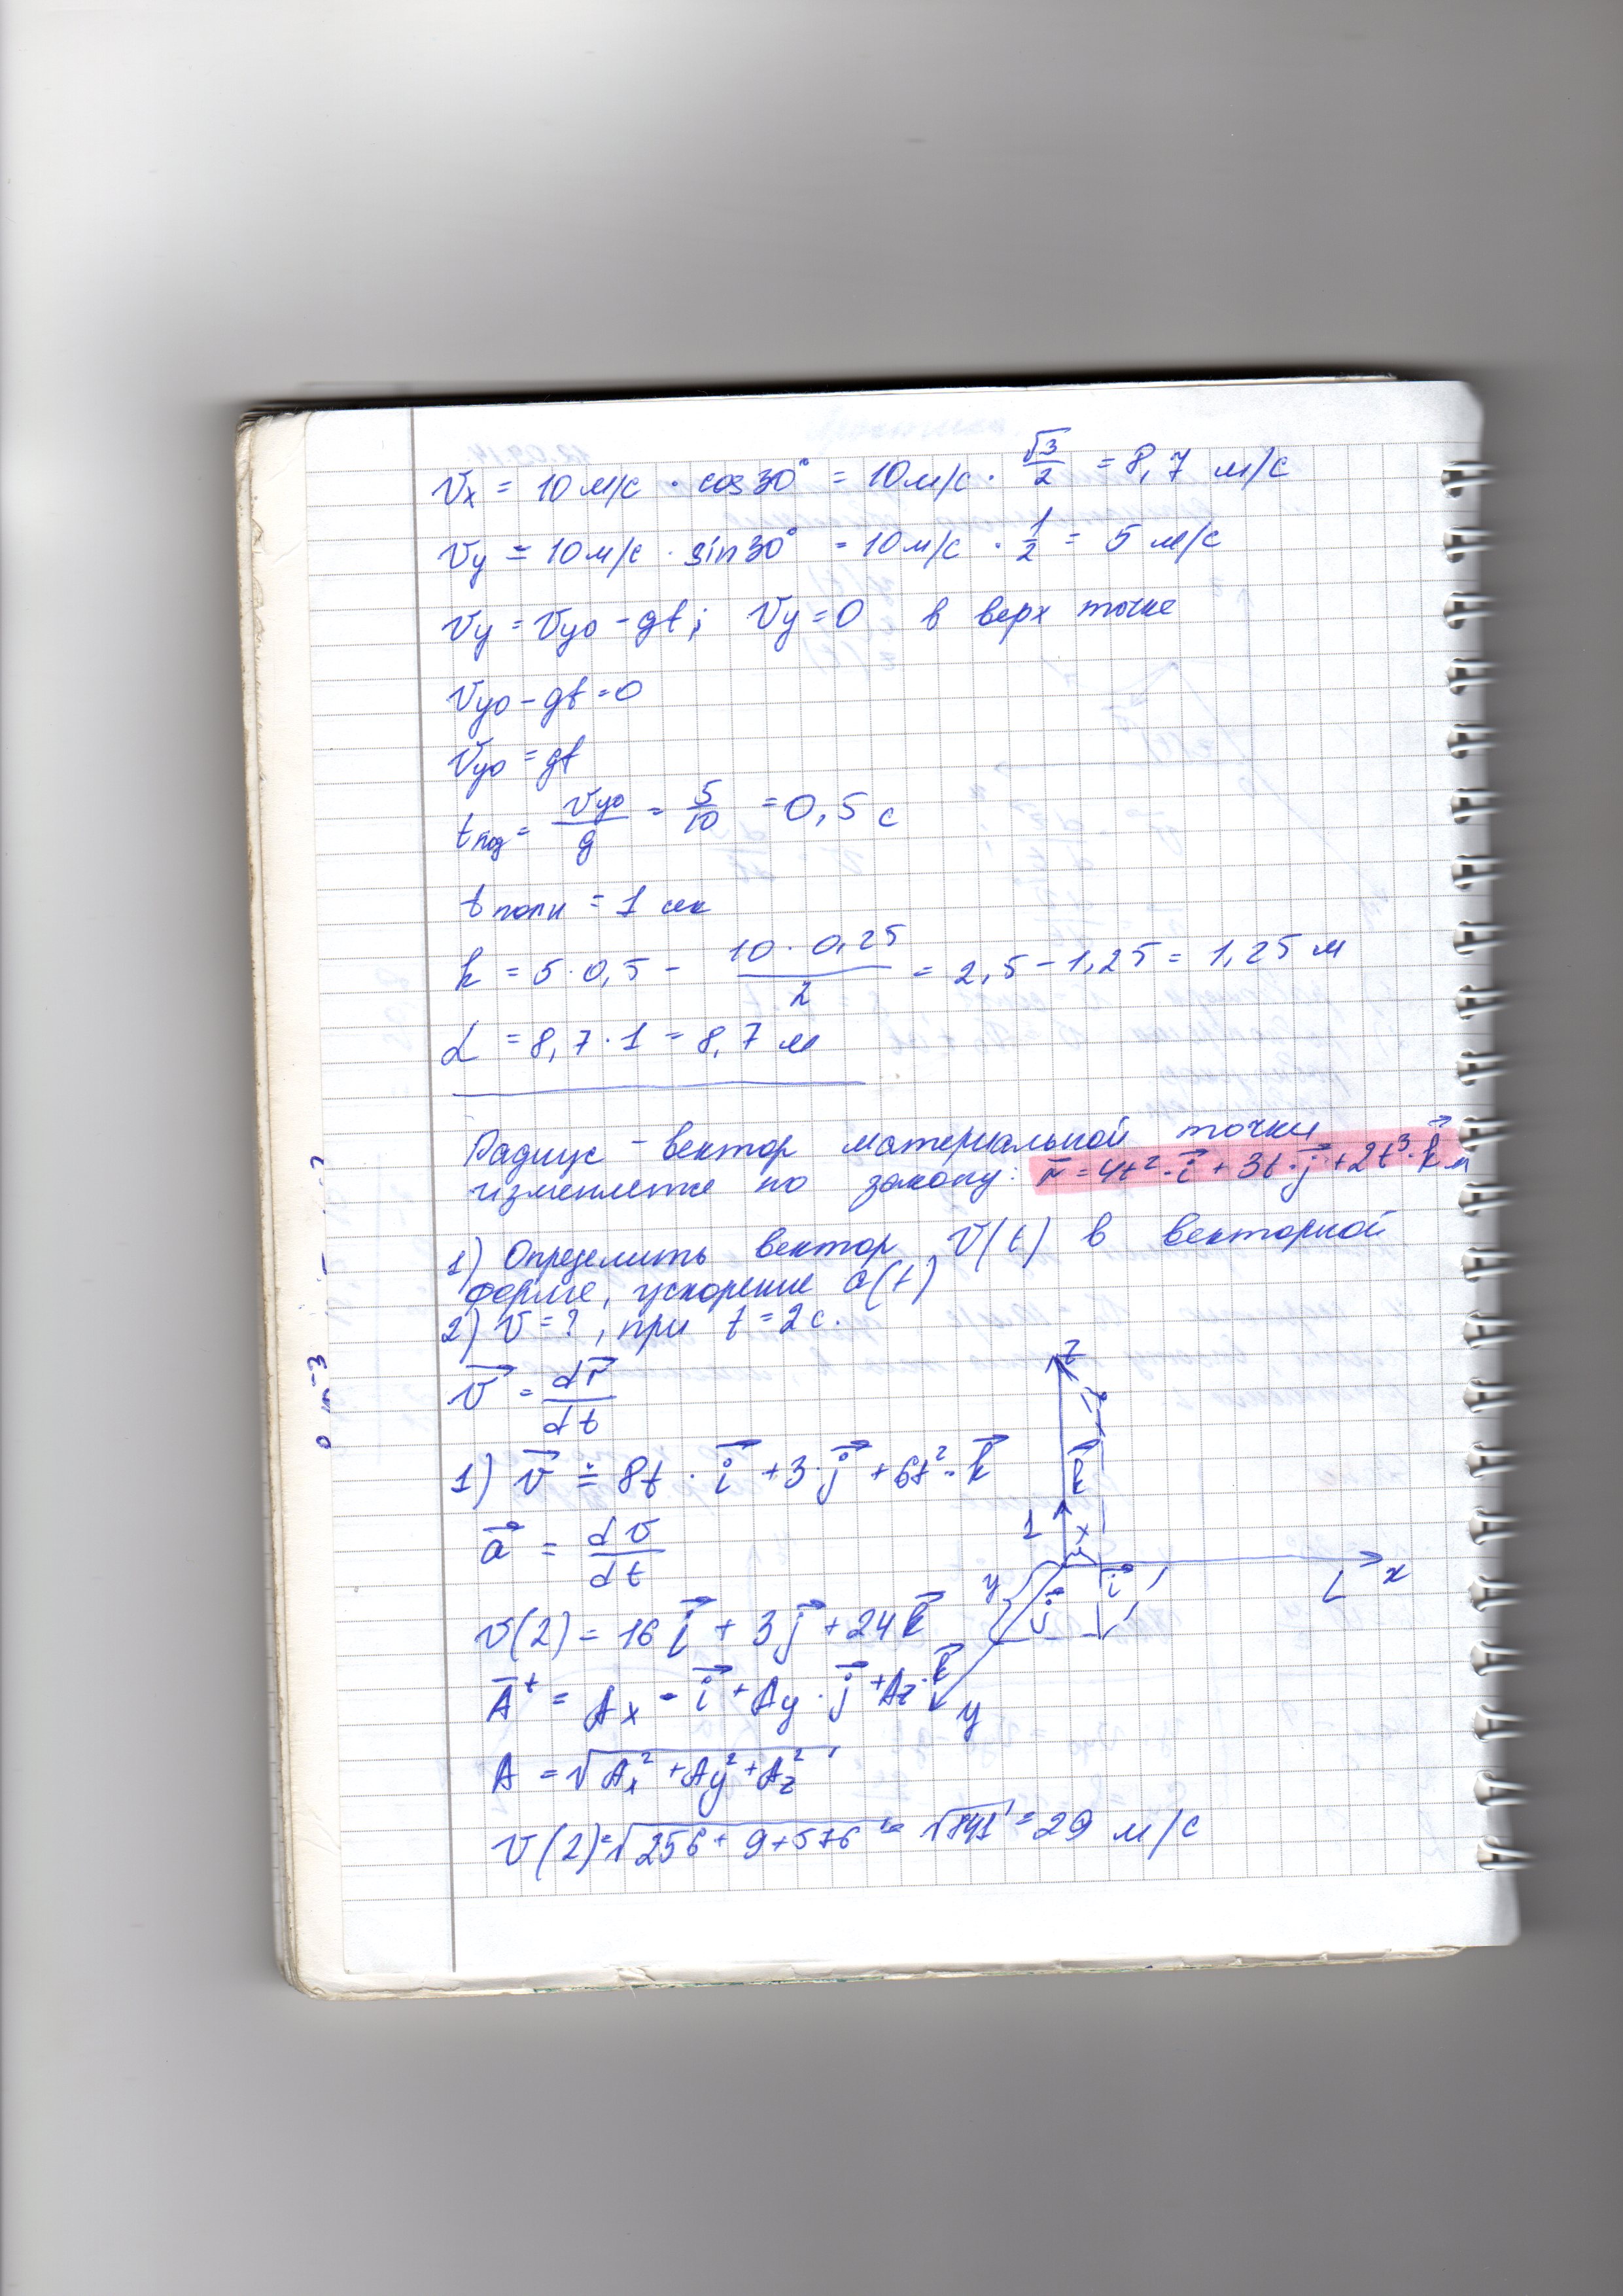 Vx = 10 м/с · cos 30° = 10 м/с · √3/2 = 8,7 м/с
Vy = 10 м/с · sin 30° = 10 м/с · 1/2 = 5 м/с
Vy = Vyo - gt; Vy = 0 в верх точке
Vyo - gt = 0
Vyo = gt
t под = Vyo/g = 5/10 = 0,5 с
t полн = 1 сек
h = 5·0,5 - 10·0,25/2 = 2,5 - 1,25 = 1,25 м
L = 8,7·1 = 8,7 м
Радиус - вектор материальной точки
изменяется по закону: r⃗ = 4t²·i⃗ + 3t·j⃗ + 2t³·k⃗ м
1) Определить вектор V(t) в векторной
форме, ускорение a(t)
2) v = ?, при t = 2 с.
v⃗ = dr⃗/dt
1) v⃗ = 8t·i⃗ + 3·j⃗ + 6t²·k⃗
a⃗ = dv/dt
v(2) = 16i⃗ + 3j⃗ + 24k⃗
A⃗ = Ax·i⃗ + Ay·j⃗ + Az·k⃗
A = √Ax² + Ay² + Az²
v(2) = √256 + 9 + 576 = √841 = 29 м/с
z
k⃗
1
x
y
j⃗
i⃗
L
x
y